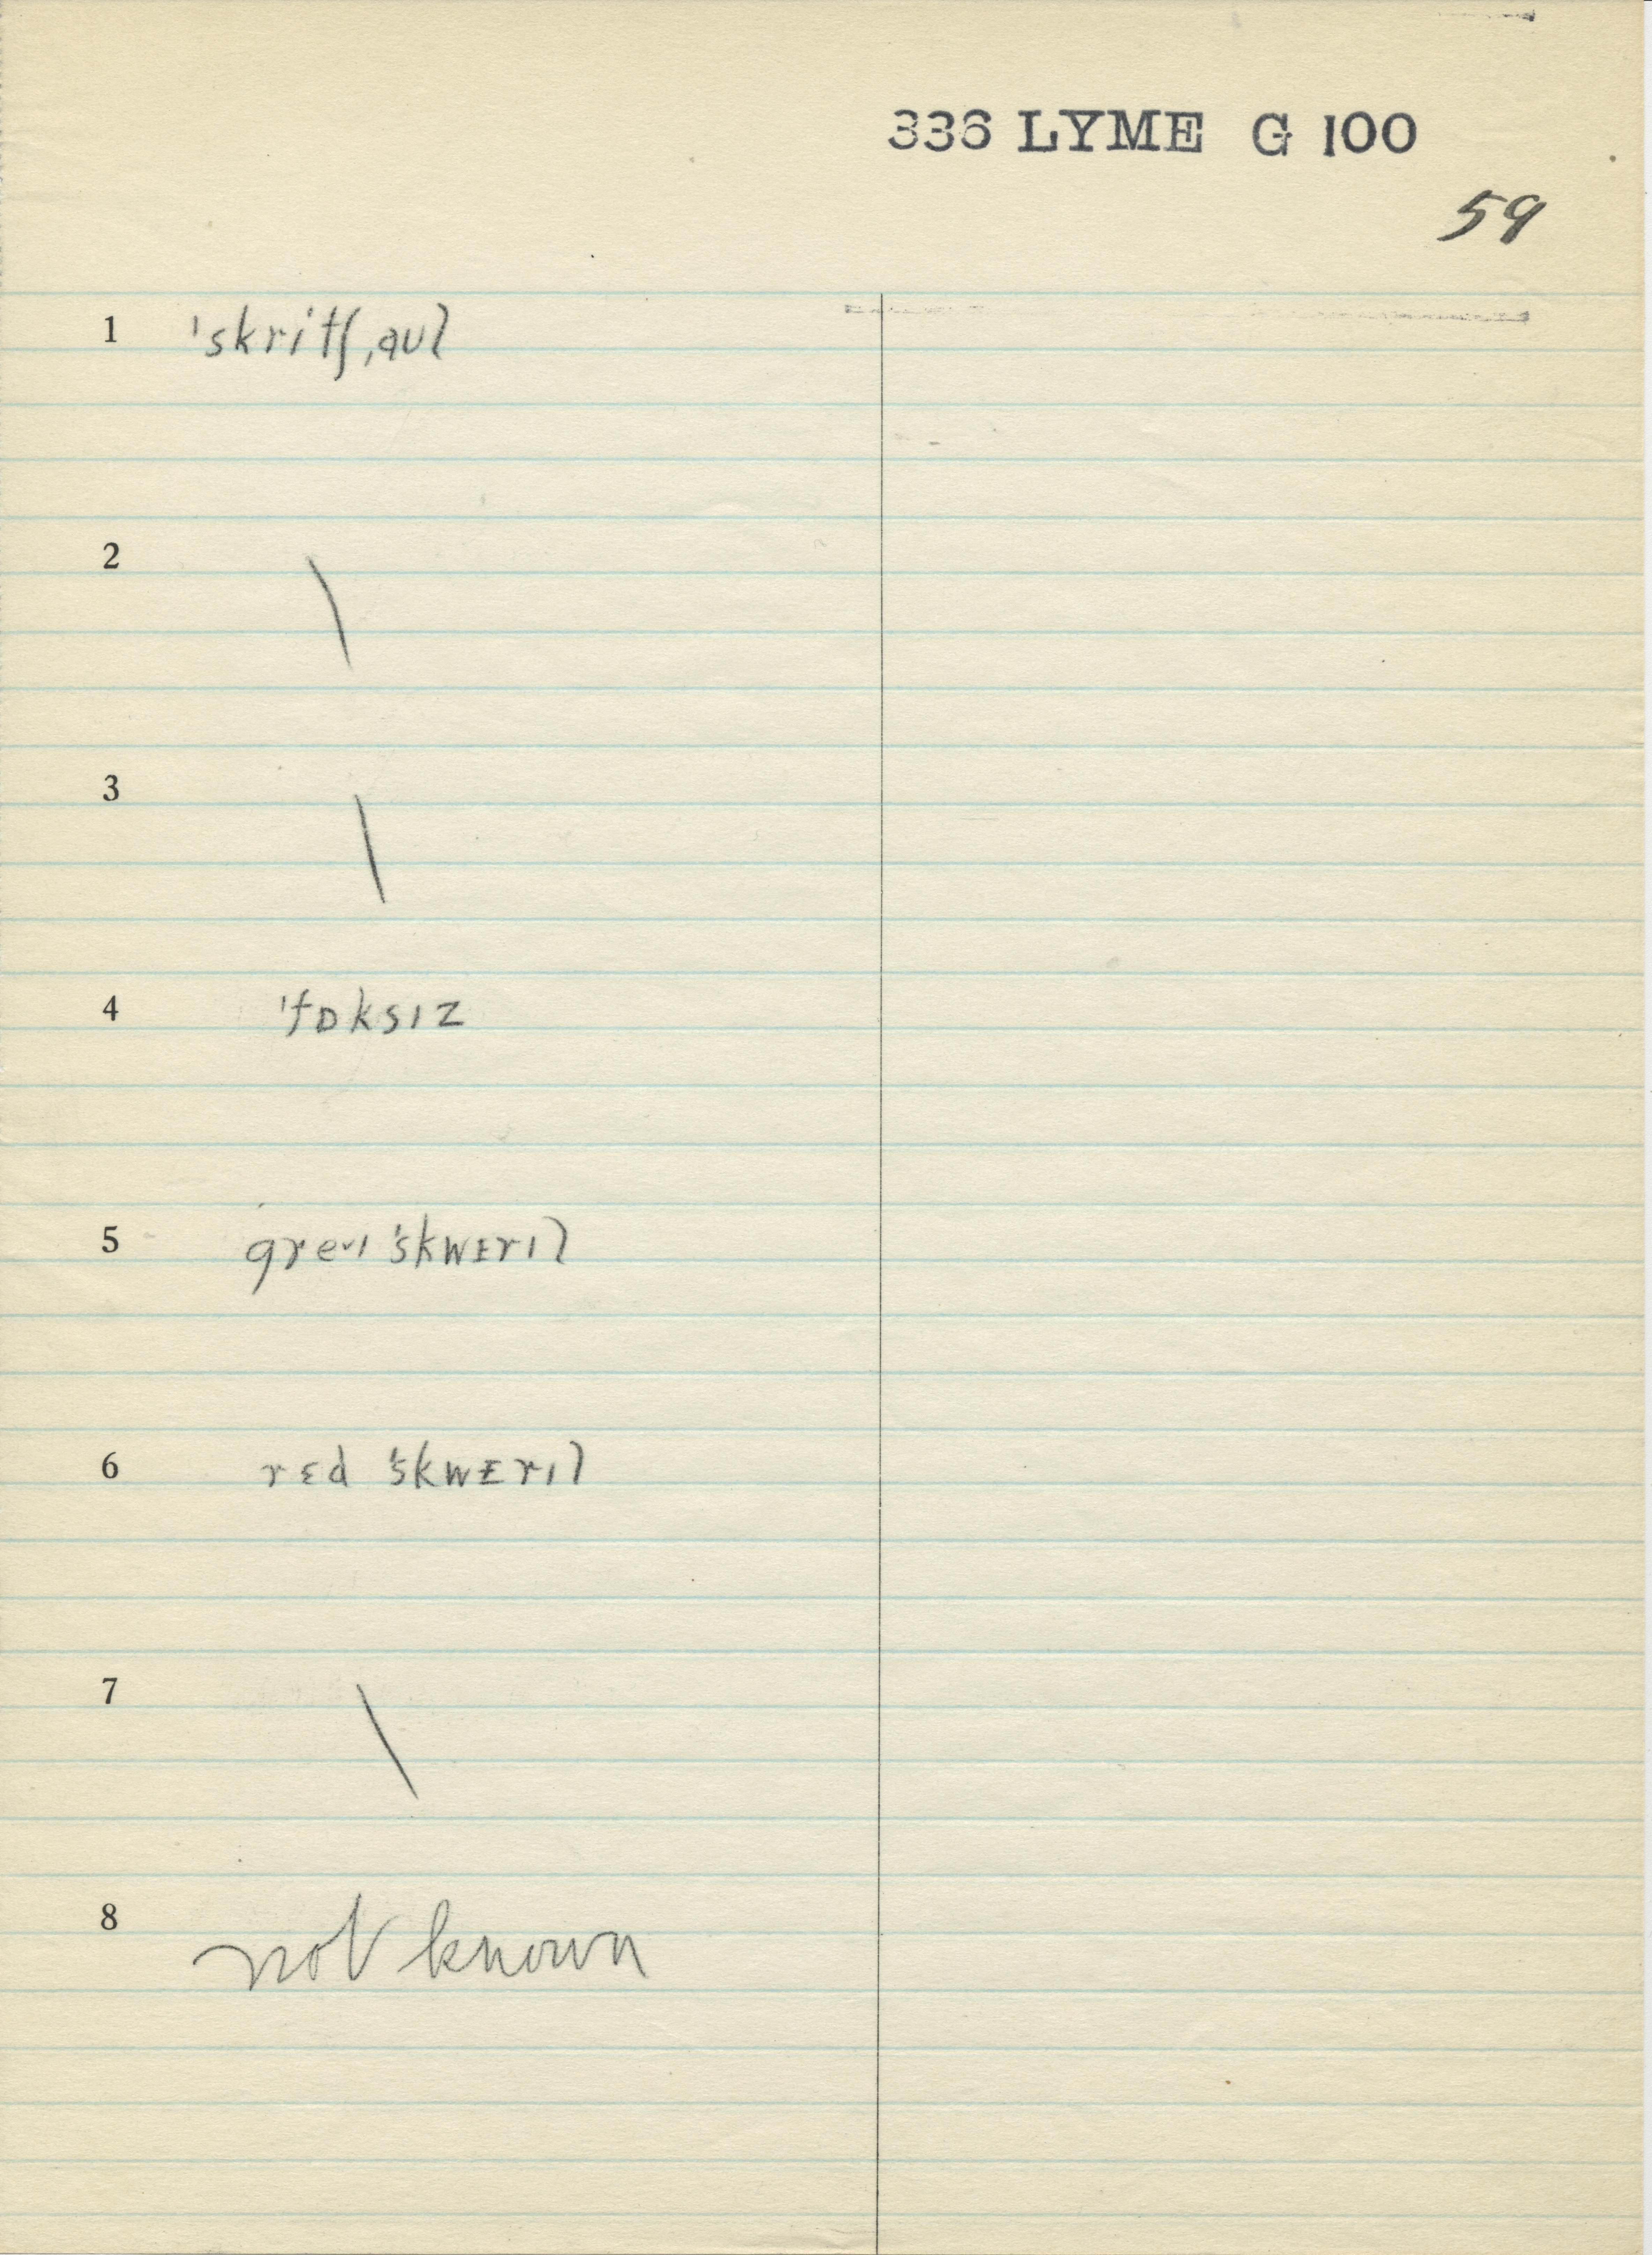 336 LYME G 100
59
1 'skritʃ,aʊl
2 \
3 \
4 'fɒksɪz
5 greˑɪ 'skwᴇrɪl
6 rɛd 'skwᴇrɪl
7 \
8 not known